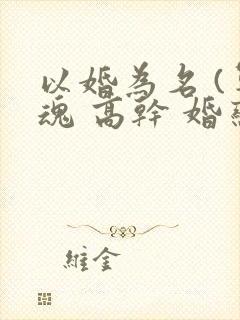 以婚為名(
魂 高幹 婚
維金